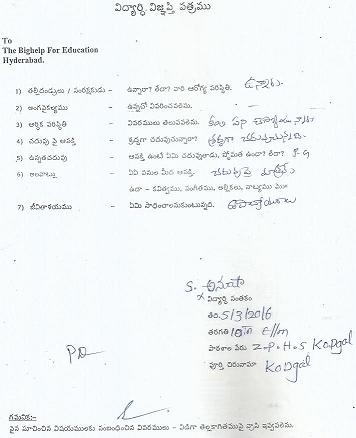 విద్యార్థి విజ్ఞప్తి పత్రము
To
The Bighelp For Education
Hyderabad.
1) తల్లిదండ్రులు / సంరక్షకుడు - ఉన్నారా? లేదా? వారి ఆరోగ్య పరిస్థితి. ఉన్నారు.
2) అంగవైకల్యము - ఉన్నచో వివరించవలెను.
3) ఆర్థిక పరిస్థితి - వివరములు తెలుపవలెను. కూలి పని
4) చదువు పై ఆసక్తి - శ్రద్ధగా చదువుచున్నారా? శ్రద్ధగా చదువుచున్నది.
5) ఉన్నతచదువు - ఆసక్తి ఉంటే ఏమి చదువుతాడు, స్తోమత ఉందా? లేదా?
6) అలవాట్లు - ఏఏ పనుల మీద ఆసక్తి. చదువుపై మాత్రమే
ఉదా - కవిత్వము, సంగీతము, అల్లికలు, నాట్యము మొ॥
7) జీవితాశయము - ఏమి సాధించాలనుకుంటున్నది. ఉపాధ్యాయురాలు
S. అనూష
X విద్యార్థి సంతకం
తేది. 5/3/2016
తరగతి 10th E/m
పాఠశాల పేరు Z.P.H.S Kodgal
పూర్తి చిరునామా Kodgal
PD
గమనిక:-
పైన సూచించిన విషయములకు సంబంధించిన వివరములు - విడిగా తెల్లకాగితముపై వ్రాసి ఇవ్వవలెను.